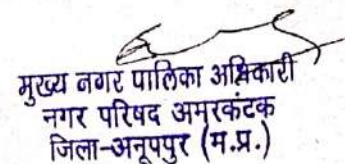 मुख्य नगर पालिका अधिकारी
नगर परिषद अमरकंटक
जिला-अनूपपुर (म.प्र.)